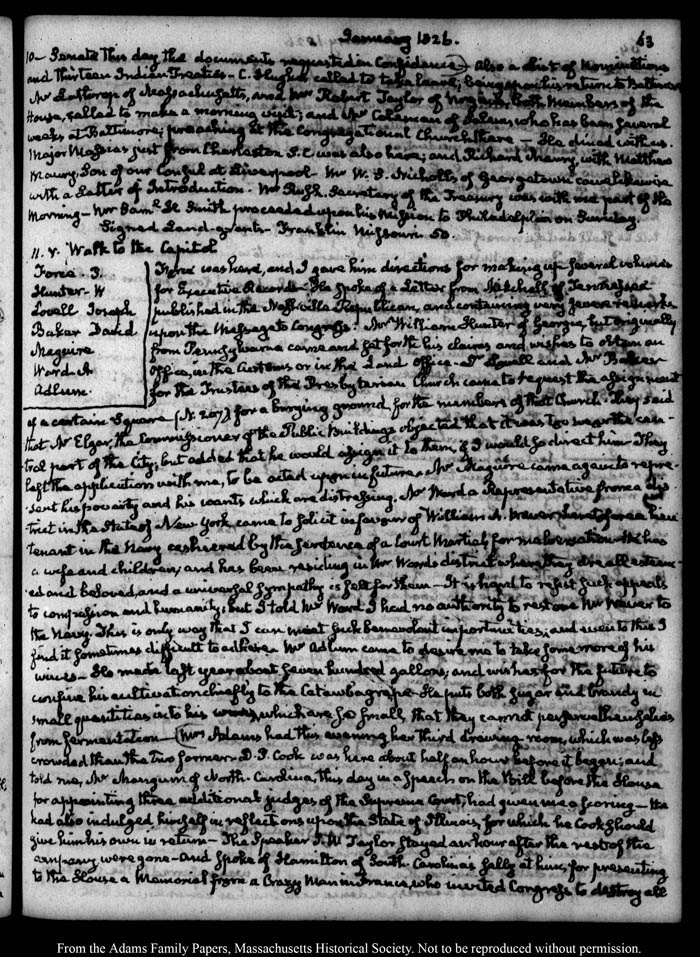 January 1826.
63
10 – Senate this day the documents requested in Confidence) also a list of Nominations
and thirteen Indian Treaties – C. Hughes called to take leave; being upon his return to Baltimore
Mr Lathrop of Massachusetts, and Mr Robert Taylor of Virginia, both Members of the
House, called to make a morning visit; and Mr Coleman of who has been several
weeks at Baltimore; preaching at the Congregational Church there – He dined with us.
Major just from Charleston S.C. was also here; and Richard Maury, with Matthew
Maury, Son of our Consul at Liverpool – Mr W. S. Nicholls of Georgetown came likewise
with a Letter of Introduction. Mr Rush. Secretary of the Treasury was with me part of the
Morning – Mr Saml H. Smith proceeded upon his Mission to Philadelphia on Sunday.
Signed Land-grants – Franklin Missouri 50.
11. V. Walk to the Capitol
Force. P.
Hunter – W
Lovell Joseph
Baker David
Maguire
Ward. A
Adlum.
Force was here, and I gave him directions for making up several volumes
for Executive Records – He spoke of a Letter from Mitchell of Tennessee
published in the Nashville Republican, and containing very severe remarks
upon the Message to Congress. Mr William Hunter of Georgia, but originally
from Pennsylvania came and set forth his claims and wishes to obtain an
Office, in the Customs or in the Land Office – Dr Lovell and Mr Baker
for the Trustees of the Presbyterian Church came to request the assignment
of a certain Square (N. 207) for a burying ground, for the members of that Church. They said
that Mr Elgar, the Commissioner of the Public Buildings objected that it was too near the cen-
tral part of the City, but added that he would assign it to them, if I would so direct him – They
left the application with me, to be acted upon in future. Mr Maguire came again to repre-
sent his poverty and his wants which are distressing. Mr Ward a Representative from a dis-
trict in the State of New York came to solicit in favour of William A. Weaver heretofore a Lieu-
tenant in the Navy cashiered by the Sentence of a Court Martial, for malversation – He has
a wife and children, and has been residing in Mr Ward's district where they are all esteem-
ed and beloved, and a universal sympathy is felt for them – It is hard to resist such appeals
to compassion and humanity; but I told Mr Ward I had no authority to restore Mr Weaver to
the Navy. This is only way that I can meet such benevolent importunities; and even to this I
find it sometimes difficult to adhere. Mr Adlum came to desire me to take some more of his
wines – He made last year about seven hundred gallons, and wishes for the future to
confine his cultivation chiefly to the Catawba grape – He puts both sugar and brandy in
small quantities into his wines, which are so small, that they cannot preserve themselves
from fermentation – (Mrs Adams had this evening her third drawing-room, which was less
crowded than the two former – D. P. Cook was here about half an hour before it began; and
told me, Mr Mangum of North-Carolina, this day in a speech on the Bill before the House
for appointing three additional judges of the Supreme Court, had given me a scoring – He
had also indulged himself in reflections upon the State of Illinois, for which he Cook should
give him his own in return – The Speaker J. W Taylor stayed an hour after the rest of the
company were gone – and spoke of Hamilton of South Carolina's sally at him, for presenting
to the House a Memorial from a Crazy Man in France, who invited Congress to destroy all
From the Adams Family Papers, Massachusetts Historical Society. Not to be reproduced without permission.